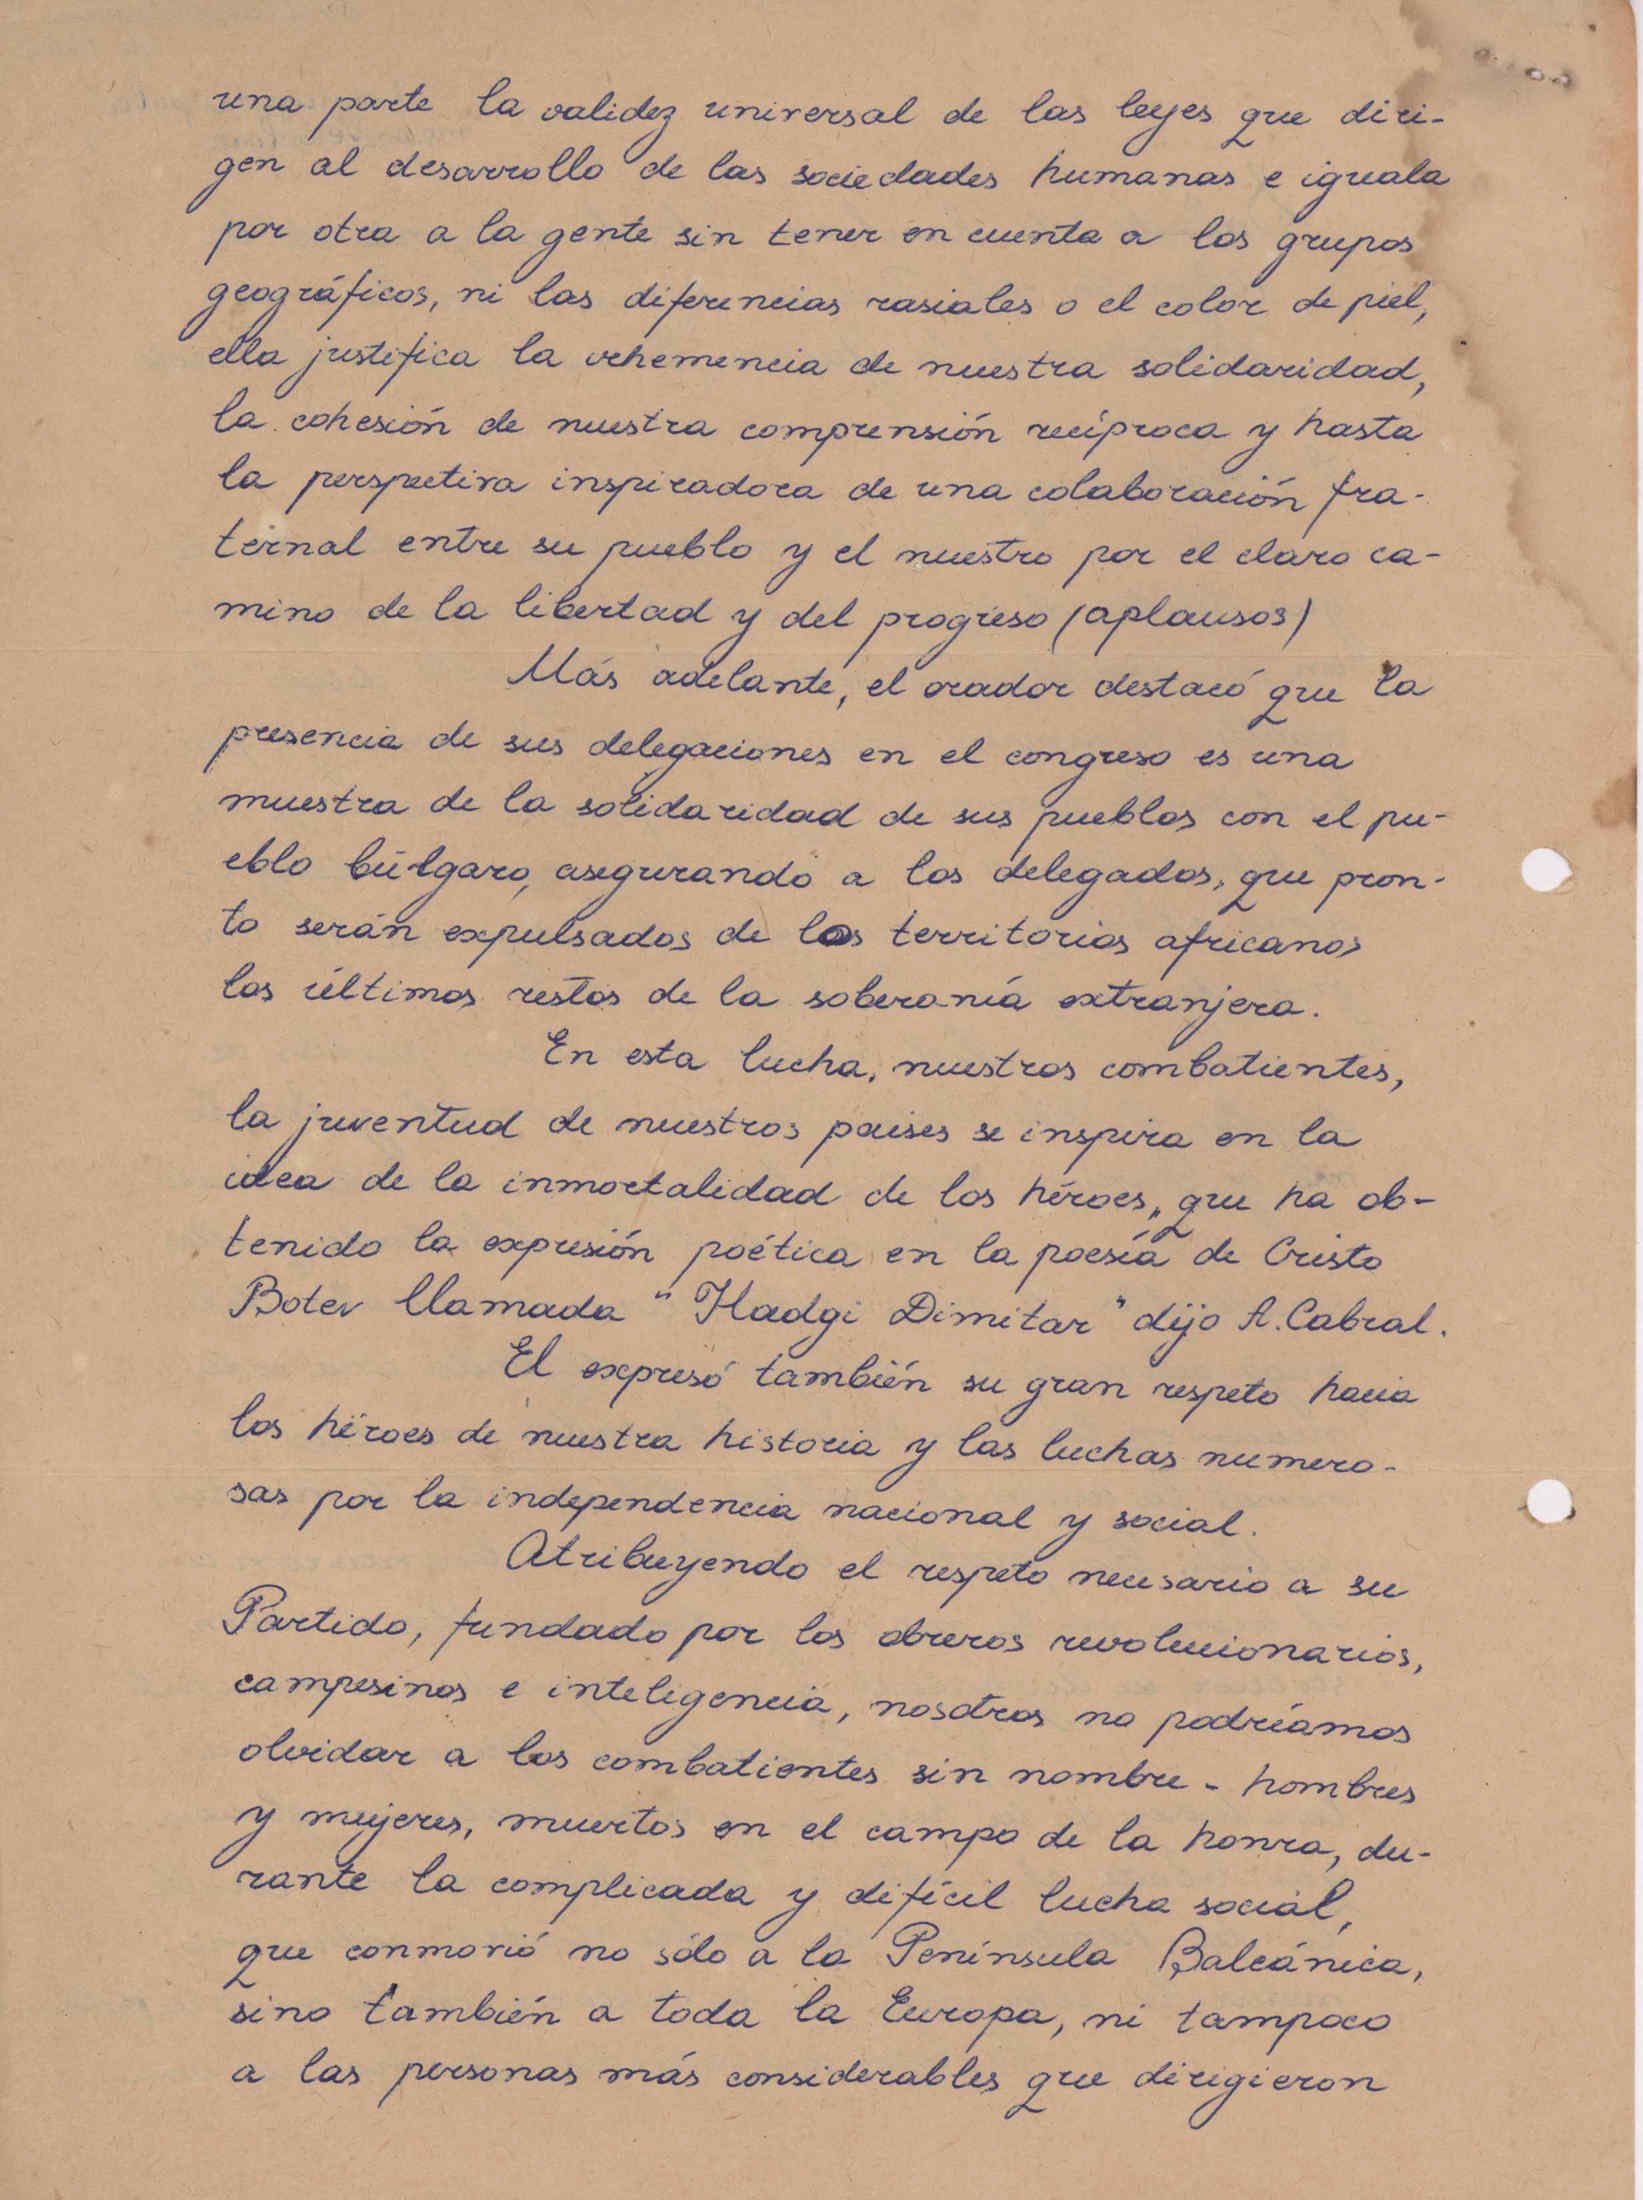 una parte la validez universal de las leyes que diri-
gen al desarrollo de las sociedades humanas e iguala
por otra a la gente sin tener en cuenta a los grupos
geográficos, ni las diferencias rasiales o el color de piel,
ella justifica la vehemencia de nuestra solidaridad,
la cohesión de nuestra comprensión recíproca y hasta
la perspectiva inspiradora de una colaboración fra-
ternal entre su pueblo y el nuestro por el claro ca-
mino de la libertad y del progreso (aplausos)
Más adelante, el orador destacó que la
presencia de sus delegaciones en el congreso es una
muestra de la solidaridad de sus pueblos con el pu-
eblo búlgaro, asegurando a los delegados, que pron-
to serán expulsados de los territorios africanos
los últimos restos de la soberanía extranjera.
En esta lucha, nuestros combatientes,
la juventud de nuestros paises se inspira en la
idea de la inmortalidad de los héroes, que ha ob-
tenido la expresión poética en la poesía de Cristo
Botev llamada "Hadgi Dimitar" dijo A. Cabral.
El expresó también su gran respeto hacia
los héroes de nuestra historia y las luchas numero-
sas por la independencia nacional y social.
Atribuyendo el respeto necesario a su
Partido, fundado por los obreros revolucionarios,
campesinos e inteligencia, nosotros no podríamos
olvidar a los combatientes sin nombre - hombres
y mujeres, muertos en el campo de la honra, du-
rante la complicada y difícil lucha social,
que conmovió no sólo a la Península Balcánica,
sino también a toda la Europa, ni tampoco
a las personas más considerables que dirigieron